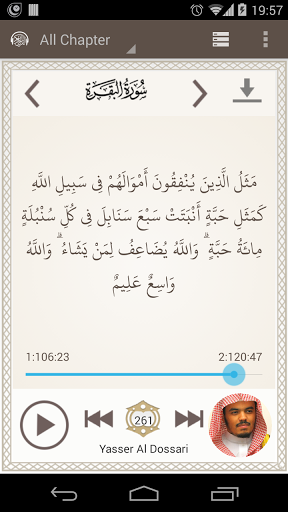 19:57
All Chapter
سُورَةُ البَقَرَةِ
مَثَلُ الَّذِينَ يُنْفِقُونَ أَمْوَالَهُمْ فِي سَبِيلِ اللَّهِ
كَمَثَلِ حَبَّةٍ أَنْبَتَتْ سَبْعَ سَنَابِلَ فِي كُلِّ سُنْبُلَةٍ
مِائَةُ حَبَّةٍ ۗ وَاللَّهُ يُضَاعِفُ لِمَنْ يَشَاءُ ۗ وَاللَّهُ
وَاسِعٌ عَلِيمٌ
1:106:23 2:120:47
261
Yasser Al Dossari